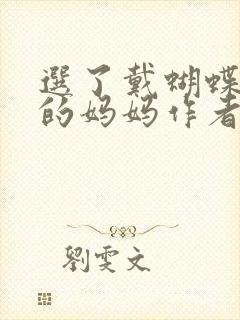 選了戴蝴蝶
的妈妈作者
劉雯文